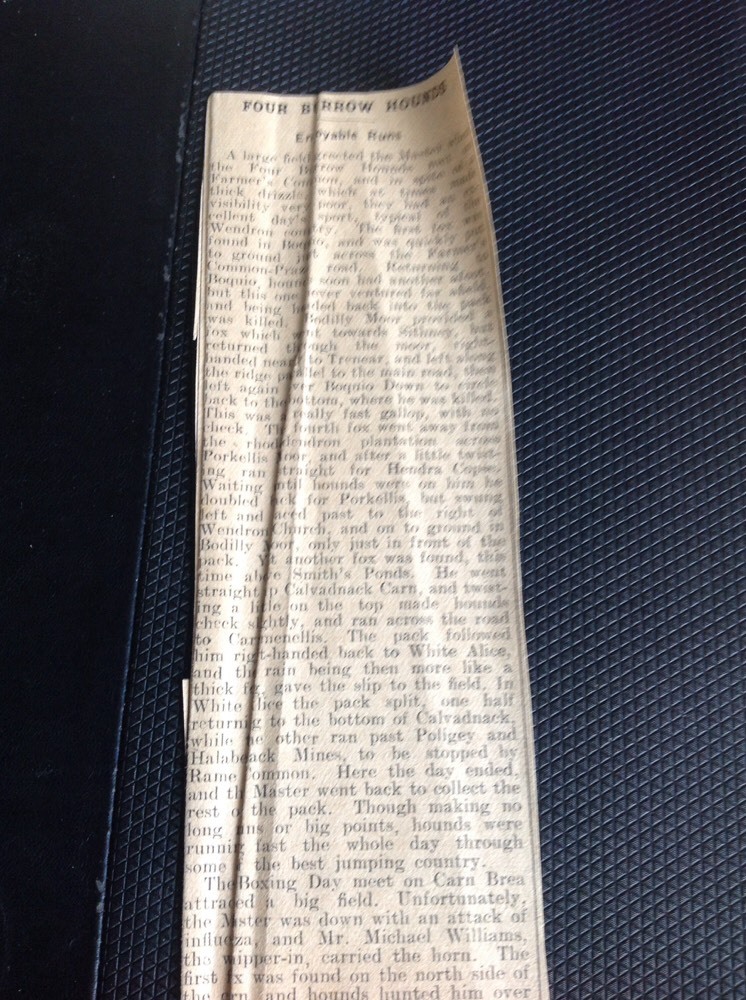 FOUR BURROW HOUNDS
Enjoyable Runs
A large field greeted the Master
the Four Burrow Hounds
Farmer's Common, and in spite
thick drizzle which at times
visibility very poor, they had an ex-
cellent day's sport, typical of
Wendron country. The first fox was
found in Boquio, and was quickly
to ground just across the Farmer's
Common-Praze road. Returning
Boquio, hounds soon had another afoot
but this one never ventured far afield
and being headed back into the pack
was killed. Bodilly Moor provided
fox which went towards Sithney, but
returned through the moor, right-
handed nearly to Trenear, and left along
the ridge parallel to the main road, then
left again over Boquio Down to circle
back to the bottom, where he was killed.
This was a really fast gallop, with no
check. The fourth fox went away from
the rhododendron plantation across
Porkellis Moor, and after a little twist-
ing ran straight for Hendra Copse.
Waiting until hounds were on him he
doubled back for Porkellis, but swung
left and raced past to the right of
Wendron Church, and on to ground in
Bodilly Moor, only just in front of the
pack. Yet another fox was found, this
time above Smith's Ponds. He went
straight up Calvadnack Carn, and twist-
ing a little on the top made hounds
check slightly, and ran across the road
to Carnmenellis. The pack followed
him right-handed back to White Alice,
and the rain being then more like a
thick fog, gave the slip to the field. In
White Alice the pack split, one half
returning to the bottom of Calvadnack,
while the other ran past Poligey and
Halabezack Mines, to be stopped by
Rame Common. Here the day ended,
and the Master went back to collect the
rest of the pack. Though making no
long runs or big points, hounds were
running fast the whole day through
some of the best jumping country.
The Boxing Day meet on Carn Brea
attracted a big field. Unfortunately,
the Master was down with an attack of
influenza, and Mr. Michael Williams,
the whipper-in, carried the horn. The
first fox was found on the north side of
the carn and hounds hunted him over